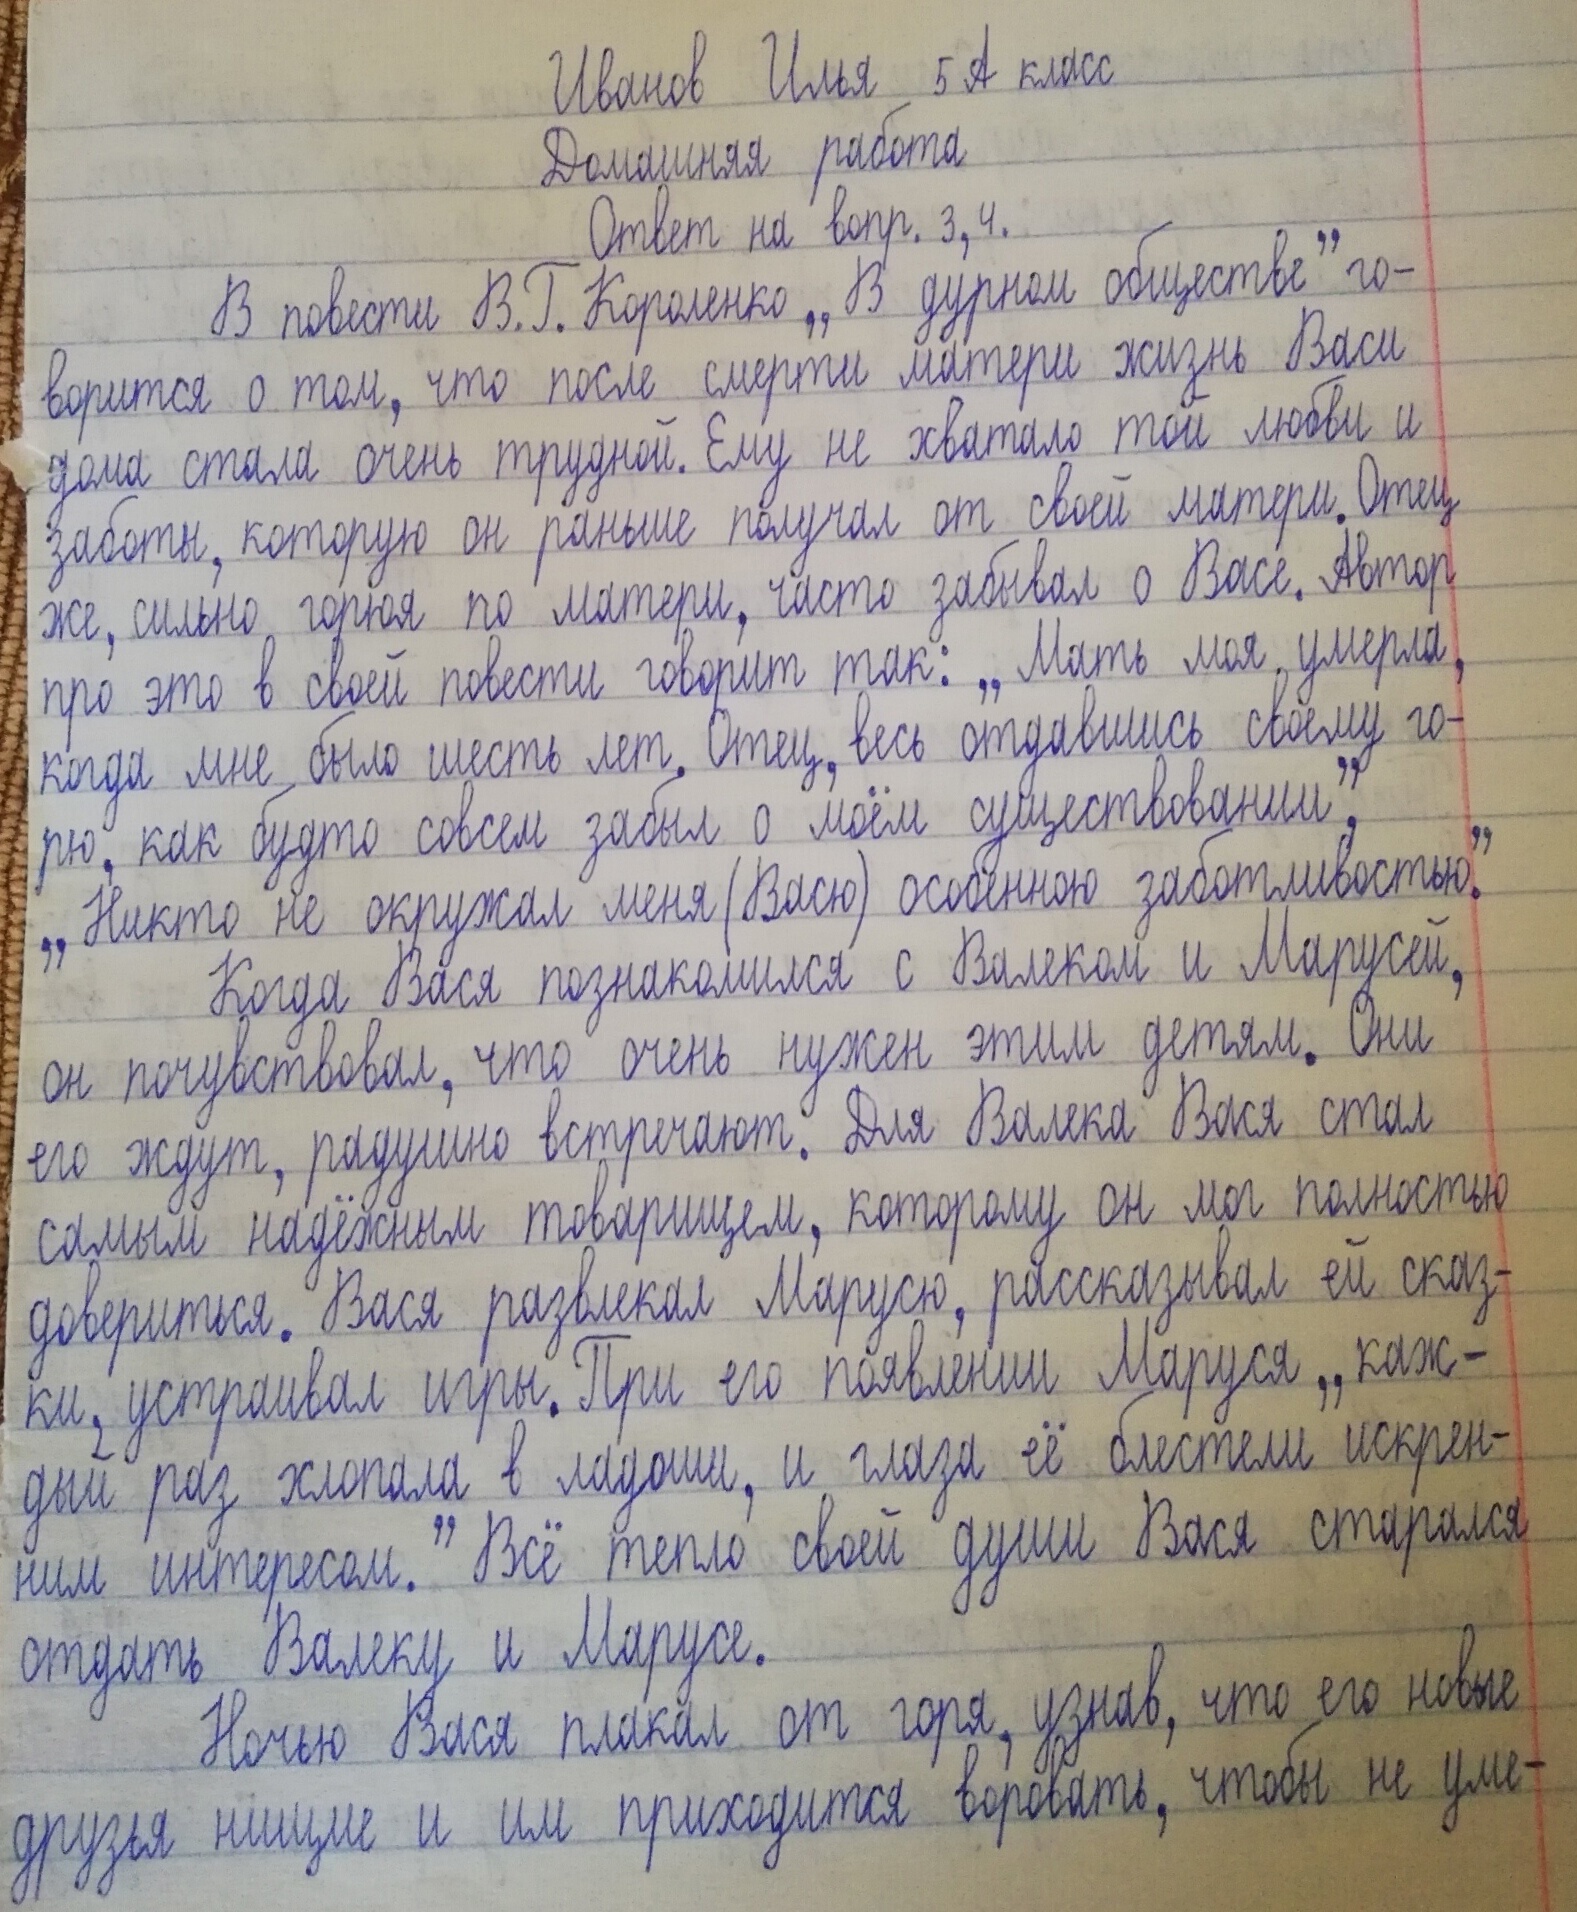 Иванов Илья 5 А класс
Домашняя работа
Ответ на вопр. 3, 4.
В повести В.Г. Короленко „В дурном обществе” го-
ворится о том, что после смерти матери жизнь Васи
дома стала очень трудной. Ему не хватало той любви и
заботы, которую он раньше получал от своей матери. Отец
же, сильно горюя по матери, часто забывал о Васе. Автор
про это в своей повести говорит так: „Мать моя умерла,
когда мне было шесть лет. Отец, весь отдавшись своему го-
рю, как будто совсем забыл о моём существовании”,
„Никто не окружал меня (Васю) особенною заботливостью.”
Когда Вася познакомился с Валеком и Марусей,
он почувствовал, что очень нужен этим детям. Они
его ждут, радушно встречают. Для Валека Вася стал
самым надёжным товарищем, которому он мог полностью
довериться. Вася развлекал Марусю, рассказывал ей сказ-
ки, устраивал игры. При его появлении Маруся „каж-
дый раз хлопала в ладоши, и глаза её блестели искрен-
ним интересом.” Всё тепло своей души Вася старался
отдать Валеку и Марусе.
Ночью Вася плакал от горя, узнав, что его новые
друзья нищие и им приходится воровать, чтобы не уме-